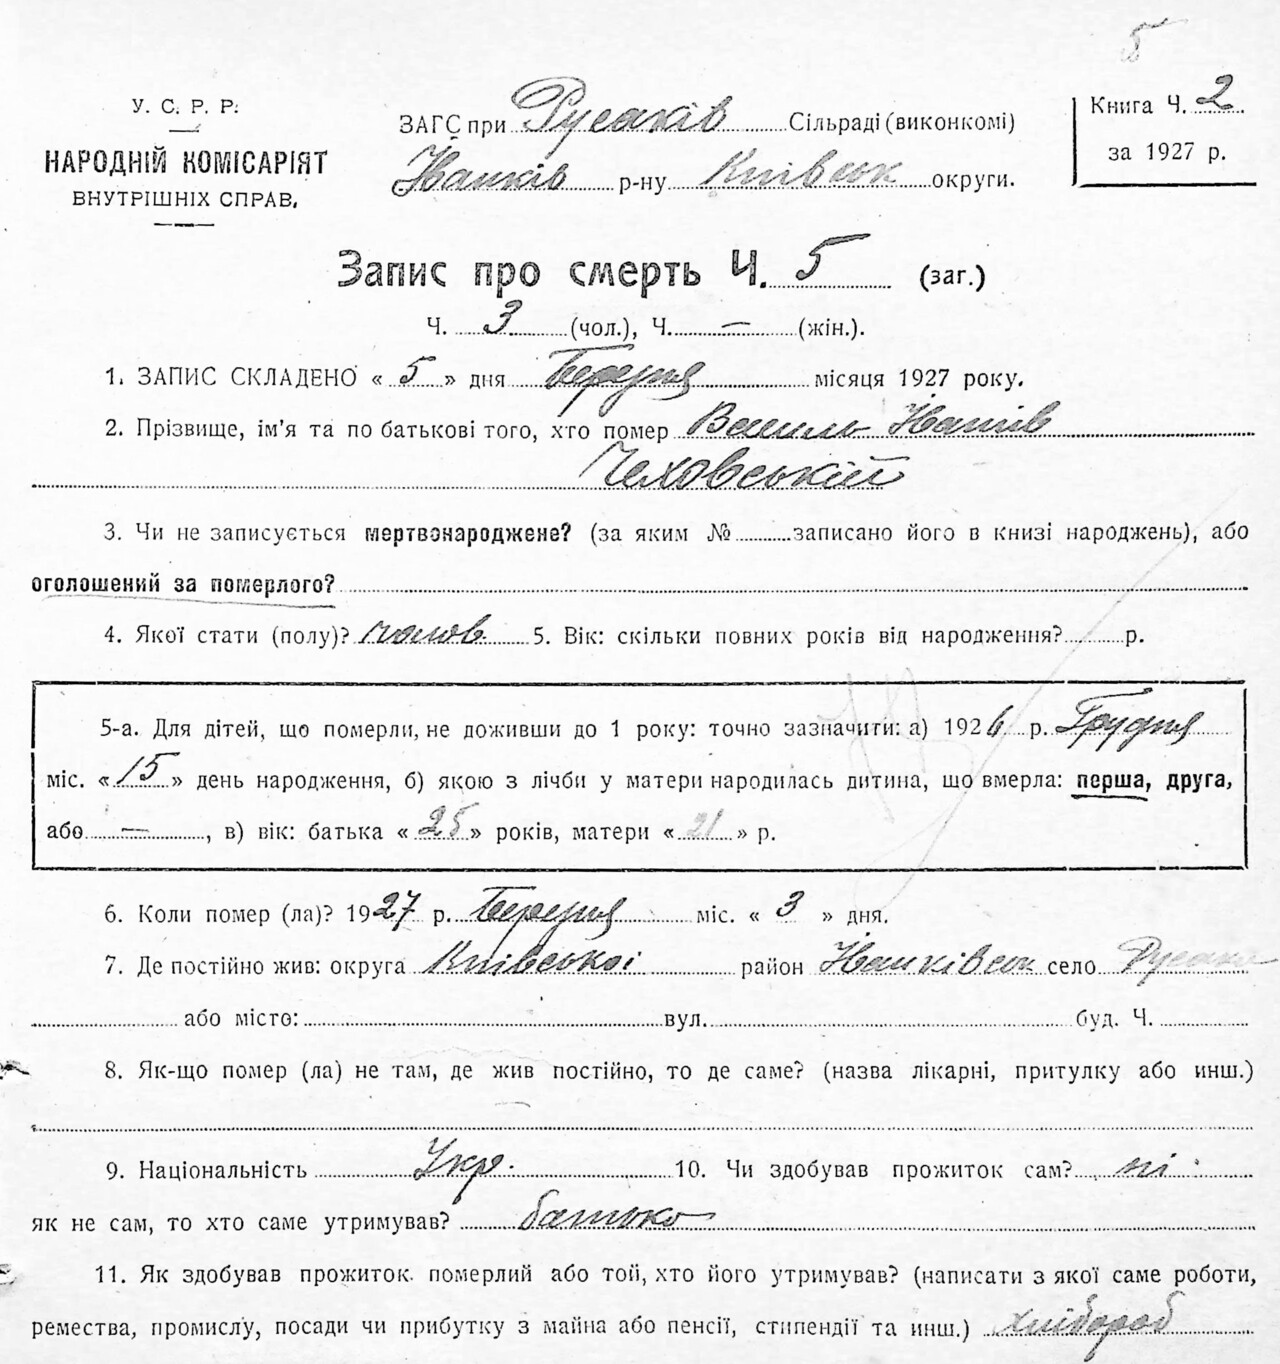 5
У. С. Р. Р.
НАРОДНІЙ КОМІСАРІЯТ
ВНУТРІШНІХ СПРАВ.
ЗАГС при Русаків Сільраді (виконкомі)
р-ну Київськ округи.
Книга Ч. 2
за 1927 р.
Запис про смерть Ч. 5 (заг.)
Ч. 3 (чол.), Ч. — (жін.).
1. ЗАПИС СКЛАДЕНО « 5 » дня Березня місяця 1927 року.
2. Прізвище, ім'я та по батькові того, хто помер Василь
Чеховський
3. Чи не записується мертвонароджене? (за яким № записано його в книзі народжень), або
оголошений за померлого?
4. Якої стати (полу)? чолов 5. Вік: скільки повних років від народження? р.
5-а. Для дітей, що померли, не доживши до 1 року: точно зазначити: а) 1926 р. Грудня
міс. « 15 » день народження, б) якою з лічби у матери народилась дитина, що вмерла: перша, друга,
або — , в) вік: батька « 25 » років, матери « 21 » р.
6. Коли помер (ла)? 1927 р. Березня міс. « 3 » дня.
7. Де постійно жив: округа Київської район село Русаків
або місто: вул. буд. Ч.
8. Як-що помер (ла) не там, де жив постійно, то де саме? (назва лікарні, притулку або инш.)
9. Національність Укр. 10. Чи здобував прожиток сам? ні
як не сам, то хто саме утримував? батько
11. Як здобував прожиток. померлий або той, хто його утримував? (написати з якої саме роботи,
ремества, промислу, посади чи прибутку з майна або пенсії, стипендії та инш.) хлібороб